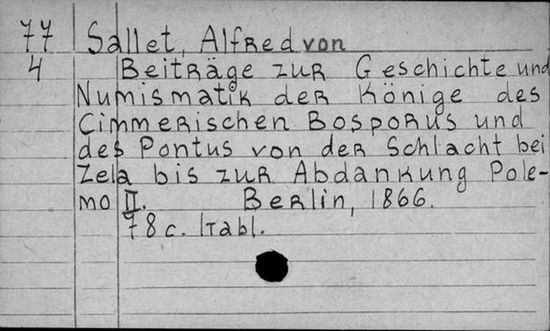 77 Sallet, Alfred von
4 Beiträge zur Geschichte und
Numismatik der Könige des
Cimmerischen Bosporus und
des Pontus von der Schlacht bei
Zela bis zur Abdankung Pole-
mo II. Berlin, 1866.
78 c. 1 tabl.